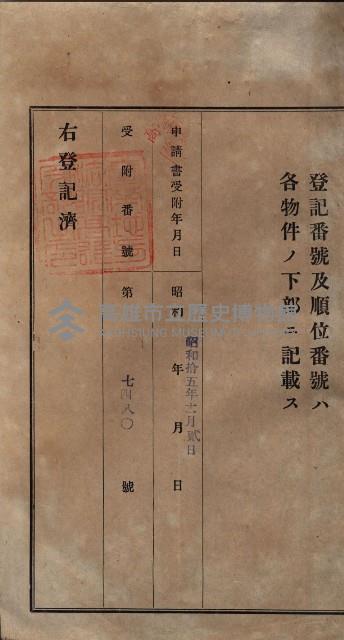 登記番號及順位番號ハ
各物件ノ下部ニ記載ス
申請書受附年月日
昭和 年 月 日
昭和拾五年 月貳日
受附番號 第 七四八〇 號
右登記濟
高雄市立歷史博物館
KAOHSIUNG MUSEUM OF HISTORY